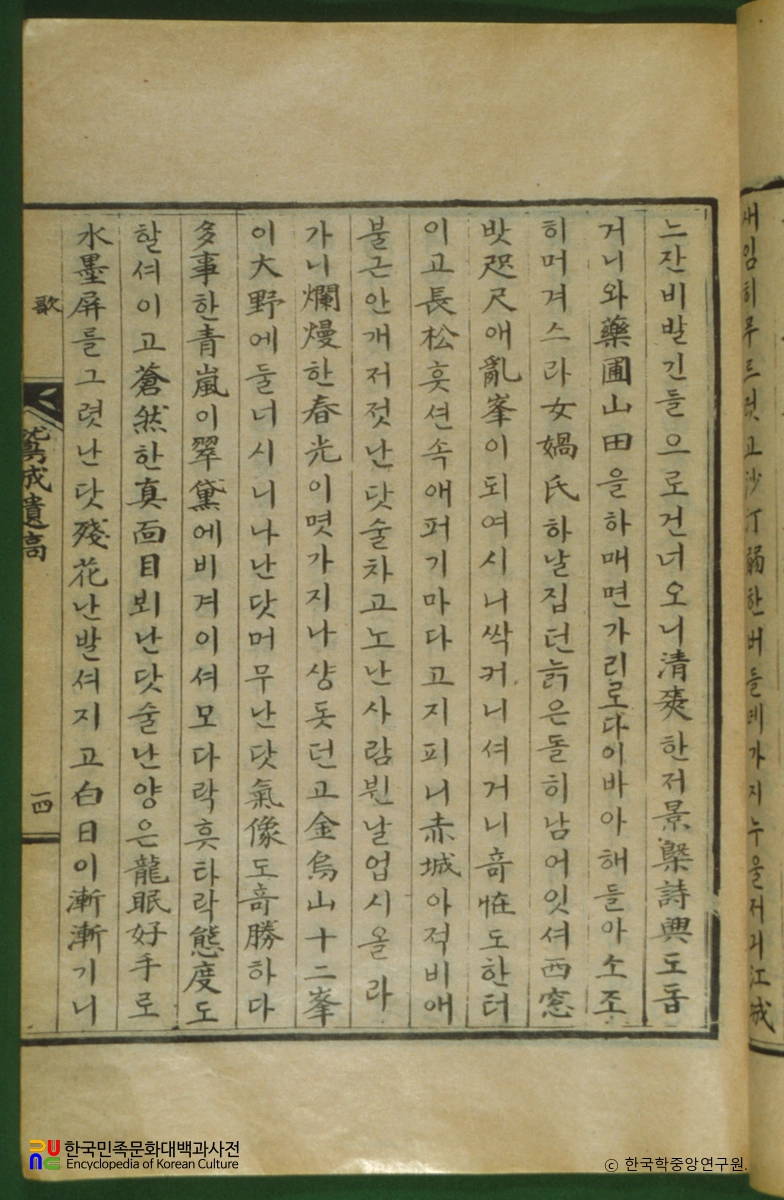 새임히루르럿고沙汀弱한버들네가지누울저긔江城
느잔비발긴들으로건너오니清爽한저景槩詩興도돕
거니와藥圃山田을하매면가리로다이바아해들아소조
히머겨스라女媧氏하날집던늙은돌히남어잇셔西窓
밧咫尺애亂峯이되여시니싹커니셔거니奇恠도한터
이고長松흣션속애퍼기마다고지피니赤城아적비애
불근안개저젓난닷술차고노난사람뷘날업시올라
가니爛熳한春光이몃가지나샹돗던고金烏山十二峯
이大野에둘너시니나난닷머무난닷氣像도奇勝하다
多事한青嵐이翠黛에비겨이셔모다락흣타락態度도
할셔이고蒼然한真面目뵈난닷술난양은龍眠好手로
水墨屏를그렷난닷殘花난발셔지고白日이漸漸기니
歌
鷲成遺高
一四
한국민족문화대백과사전
Encyclopedia of Korean Culture
ⓒ 한국학중앙연구원.